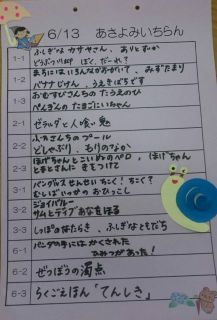 6/13 あさよみいちらん
1-1 ふしぎな カサやさん、ありとすいか
どうぶつ ぼく、だれ?
1-2 まちには いろんな かおがいて、みずたまり
バナナじけん、うえきばちです
1-3 おむすびさんちの たうえのひ
ぺんぎんの たまごにいちゃん
2-1 ゼラルダと人喰い鬼
2-2 ふたごさんのプール
どしゃぶり、もりのなか
2-3 ほげちゃんと こいぬのペロ、ほげちゃん
とまとさんに きをつけて
3-1 パングルス せんせい ちこく! ちこく?
むしばいっかの おひっこし
3-2 ジョイバレー
サムとデイブ あなをほる
3-3 しっぽのはたらき、ふしぎなともだち
6-1 パンダの手には かくされた
ひみつがあった!
6-2 ぜつぼうの濁点
6-3 らくごえほん「てんしき」